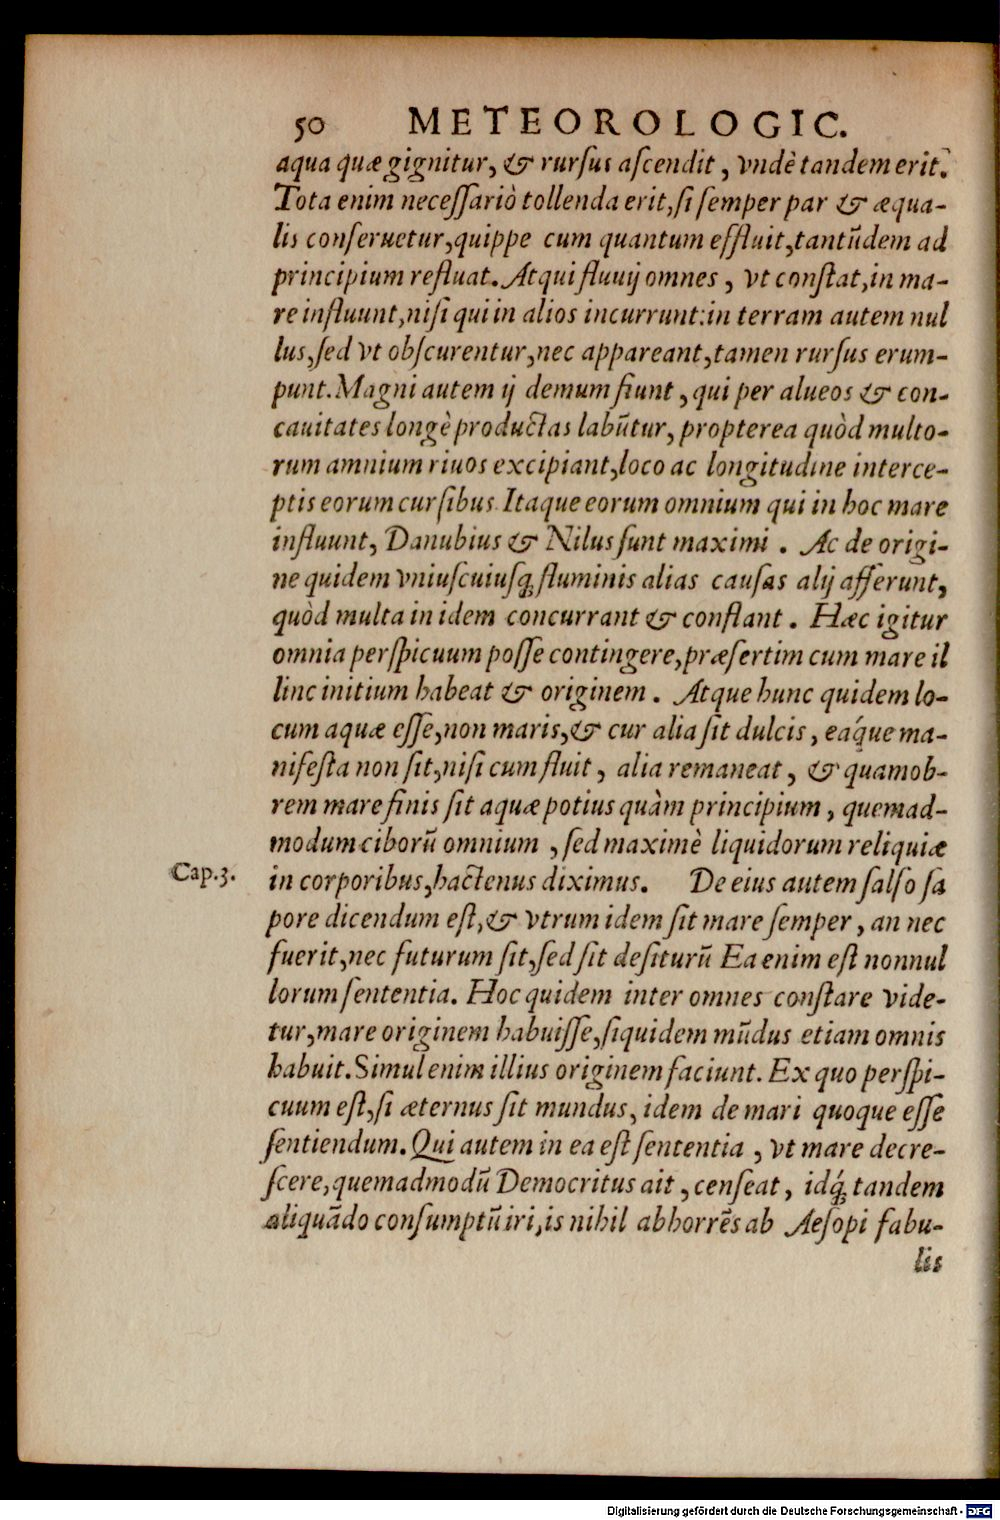 50 METEOROLOGIC.
aqua quæ gignitur, & rurſus aſcendit, vndè tandem erit?
Tota enim neceſſariò tollenda erit, ſi ſemper par & æqua-
lis conſeruetur, quippe cum quantum effluit, tantũdem ad
principium refluat. Atqui fluuij omnes, vt conſtat, in ma-
re influunt, niſi qui in alios incurrunt: in terram autem nul
lus, ſed vt obſcurentur, nec appareant, tamen rurſus erum-
punt. Magni autem ij demum fiunt, qui per alueos & con-
cauitates longè productas labũtur, propterea quòd multo-
rum amnium riuos excipiant, loco ac longitudine interce-
ptis eorum curſibus. Itaque eorum omnium qui in hoc mare
influunt, Danubius & Nilus ſunt maximi. Ac de origi-
ne quidem vniuſcuiuſq; fluminis alias cauſas alij afferunt,
quòd multa in idem concurrant & conflant. Hæc igitur
omnia perſpicuum poſſe contingere, præſertim cum mare il
linc initium habeat & originem. Atque hunc quidem lo-
cum aquæ eſſe, non maris, & cur alia ſit dulcis, eáque ma-
nifeſta non ſit, niſi cum fluit, alia remaneat, & quamob-
rem mare finis ſit aquæ potius quàm principium, quemad-
modum ciborũ omnium, ſed maximè liquidorum reliquiæ
Cap.3. in corporibus, hactenus diximus. De eius autem ſalſo ſa
pore dicendum eſt, & vtrum idem ſit mare ſemper, an nec
fuerit, nec futurum ſit, ſed ſit deſiturũ Ea enim eſt nonnul
lorum ſententia. Hoc quidem inter omnes conſtare vide-
tur, mare originem habuiſſe, ſiquidem mũdus etiam omnis
habuit. Simul enim illius originem faciunt. Ex quo perſpi-
cuum eſt, ſi æternus ſit mundus, idem de mari quoque eſſe
ſentiendum. Qui autem in ea eſt ſententia, vt mare decre-
ſcere, quemadmodũ Democritus ait, cenſeat, idq́; tandem
aliquãdo conſumptũ iri, is nihil abhorrẽs ab Aeſopi fabu-
lis
Digitalisierung gefördert durch die Deutsche Forschungsgemeinschaft - DFG